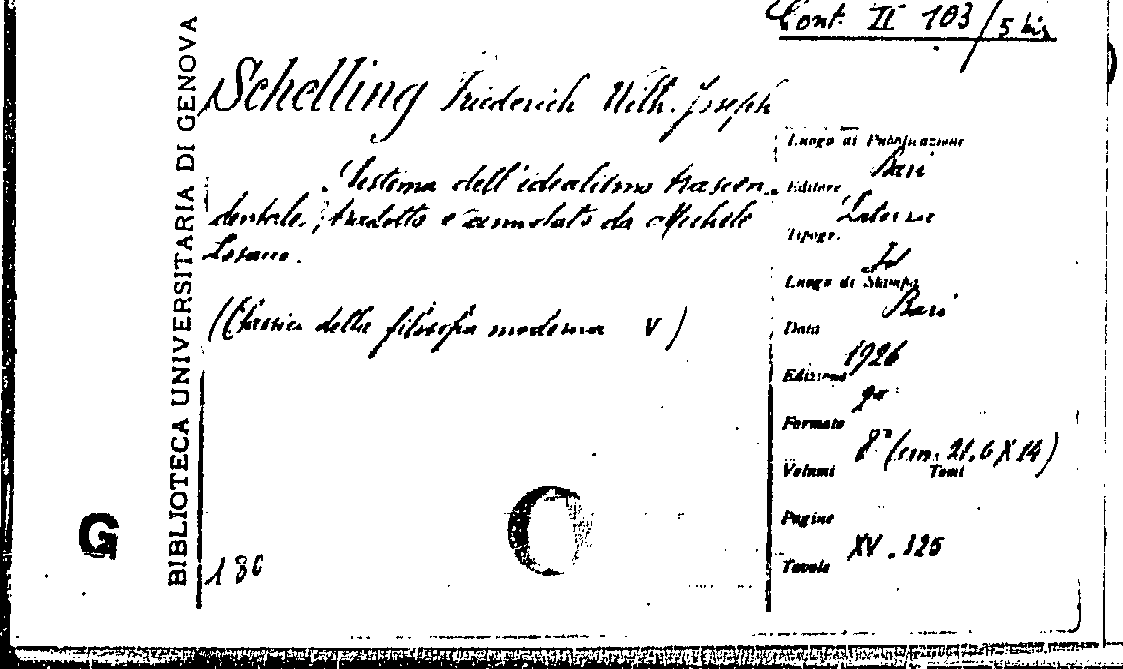 Cont. II 103/5 bis
BIBLIOTECA UNIVERSITARIA DI GENOVA
Schelling Friederich Wilh. Joseph
Sistema dell'idealismo trascen-
dentale, tradotto e annotato da Michele
Losacco.
(Classici della filosofia moderna V)
180
G
Luogo di Pubblicazione
Bari
Editore
Laterza
Tipogr.
Id
Luogo di Stampa
Bari
Data
1926
Edizione
2ª
Formato
8° (cm. 21,6 X 14)
Volumi Tomi
Pagine
XV . 325
Tavole